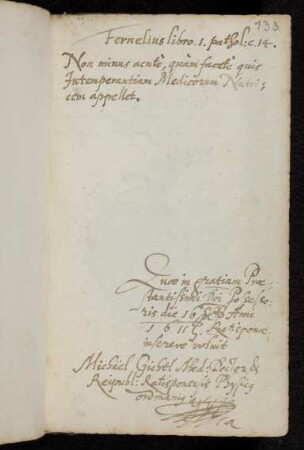 133
Fernelius libro. 1. pathol: c. 14.
Non minus acutè, quàm facetè quis
Intemperantiam Medicorum Nutri,
cem appellet.
Quae in gratiam Prae,
stantissimi Possesso,
ris die 16 Anni
1611 Ratisponae
inserere voluit
Michael Gichtl Med: Doctor &
Reipubl: Ratisponensis Physicus
ordinarius